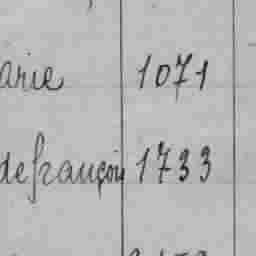 arie 1071
de françois 1733